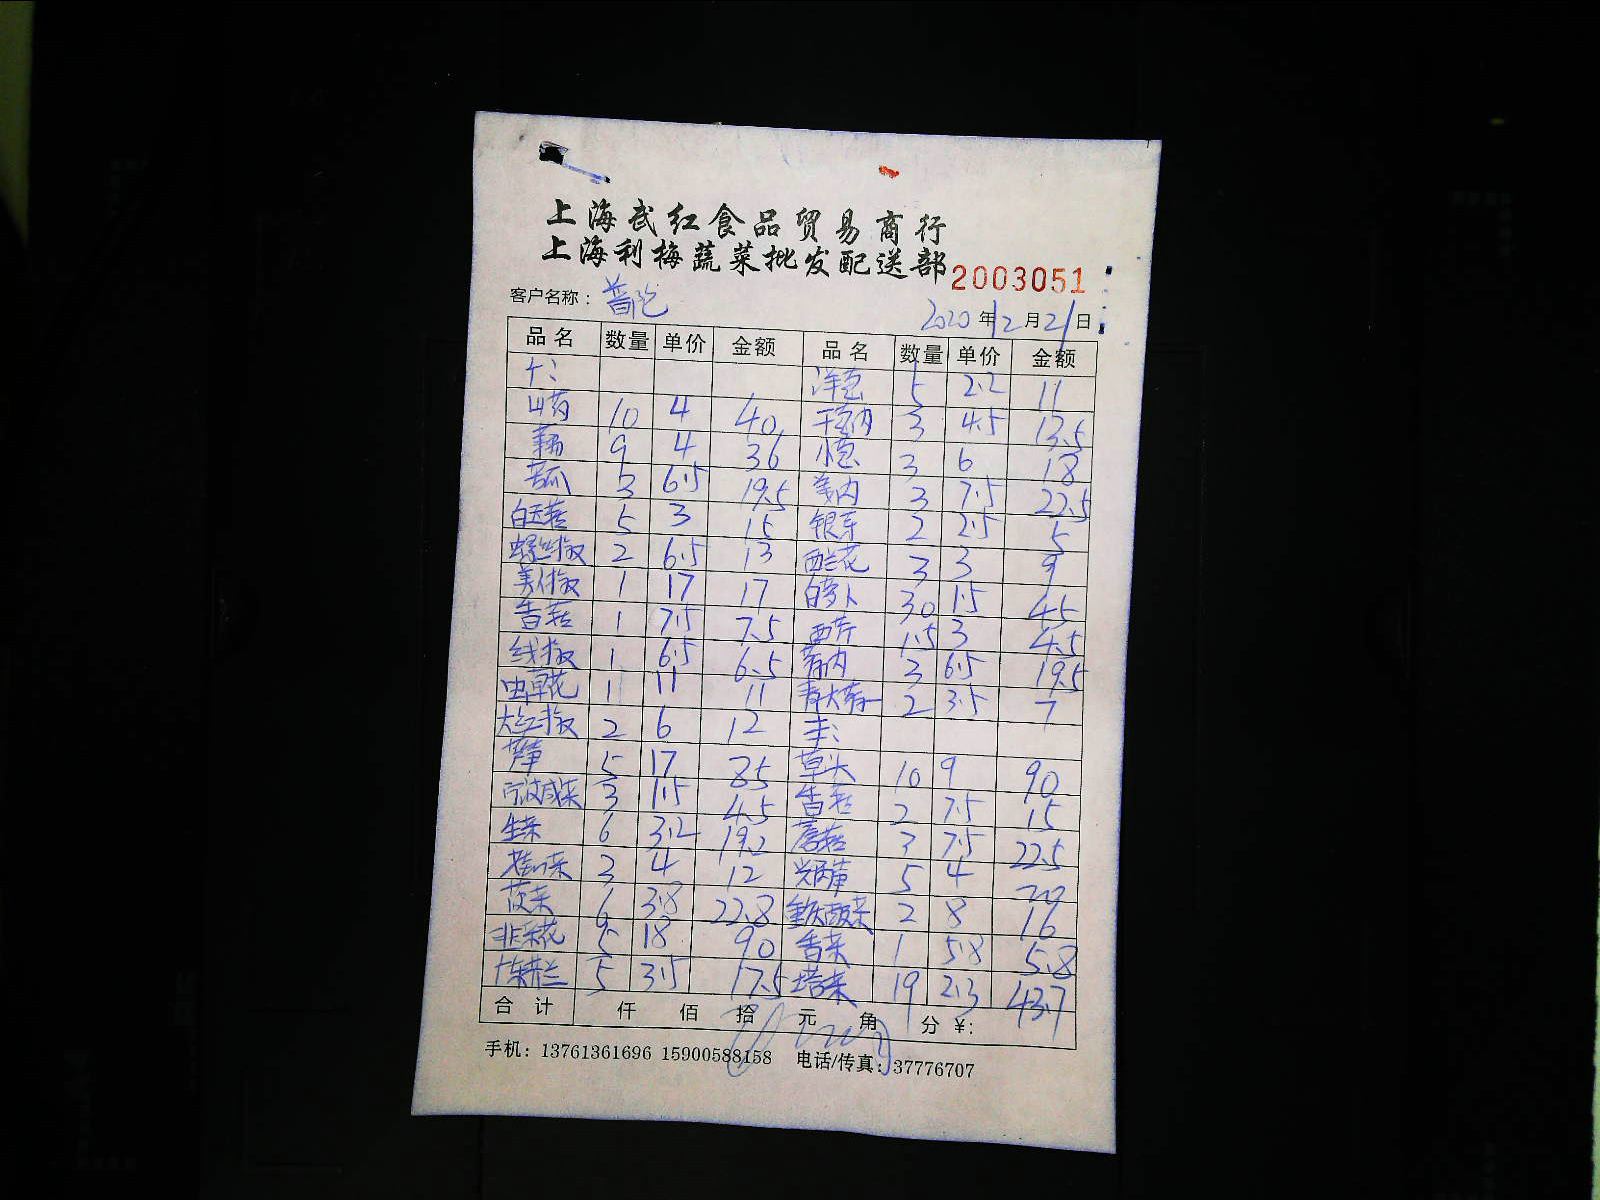 上海武红食品贸易商行
上海利梅蔬菜批发配送部 2003051
客户名称： 2020年12月21日
品名 数量 单价 金额 品名 数量 单价 金额
洋葱 5 2.2 11
山药 10 4 40 3 4.5 13.5
9 4 36 小葱 3 6 18
苦瓜 3 6.5 19.5 姜肉 3 7.5 22.5
白玉菇 5 3 15 银芽 2 2.5 5
螺丝椒 2 6.5 13 西兰花 3 3 9
美人椒 1 17 17 白萝卜 30 1.5 45
香菇 1 7.5 7.5 西芹 1.5 3 4.5
线椒 1 6.5 6.5 蒜肉 3 6.5 19.5
虫草花 1 11 11 青大蒜 2 3.5 7
大红椒 2 6 12
5 17 85 草头 10 9 90
宁波咸菜 3 1.5 4.5 香菇 2 7.5 15
生菜 6 3.2 19.2 蘑菇 3 7.5 22.5
3 4 12 5 4 20
菠菜 6 3.8 22.8 重庆酸菜 2 8 16
韭菜花 5 18 90 香菜 1 5.8 5.8
5 3.5 17.5 塔菜 19 2.3 43.7
合计 仟 佰 拾 元 角 分 ¥:
手机：13761361696 15900588158 电话/传真：37776707